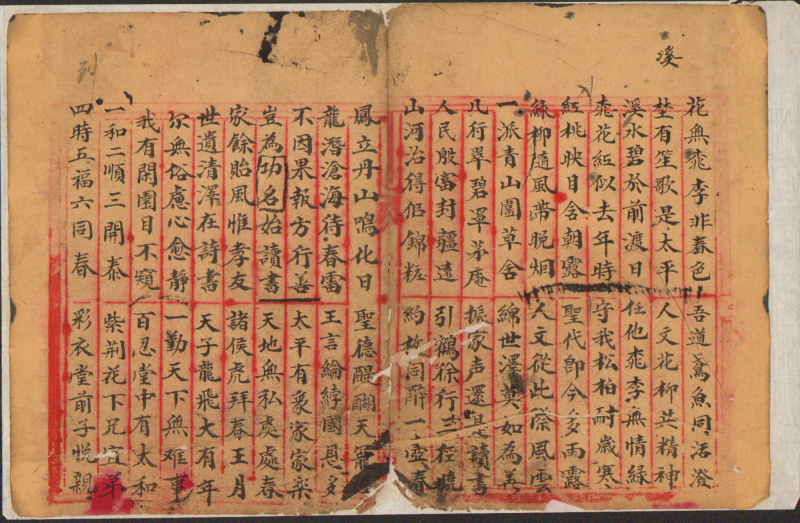 溪
花無桃李非春色 吾道鳶魚同活潑
埜有笙歌是太平 人文花柳共精神
溪水碧於前渡日 任他桃李無情綠
桃花紅似去年時 守我松柏耐歲寒
紅桃映日含朝露 聖代即今多雨露
綠柳隨風帶晚烟 人文從此際風雲
一派青山圍草舍 綿世澤莫如為善
几行翠碧罩茅庵 振家声還是讀書
人民殷富封疆遠 引鶴徐行三徑曉
山河治得佀錦粧 約梅同醉一壺春
列
鳳立丹山鳴化日 聖德醍醐天寵
龍潛滄海待春雷 王言綸綍國恩多
不因果報方行善 太平有象家家樂
豈為功名始讀書 天地無私處處春
家餘貽風惟孝友 諸侯虎拜春王月
世遺清澤在詩書 天子龍飛大有年
尔無俗慮心愈靜 一勤天下無难事
我有閑園目不窺 百忍堂中有太和
一和二順三開泰 紫荆花下兄宜弟
四時五福六同春 彩衣堂前子悅親